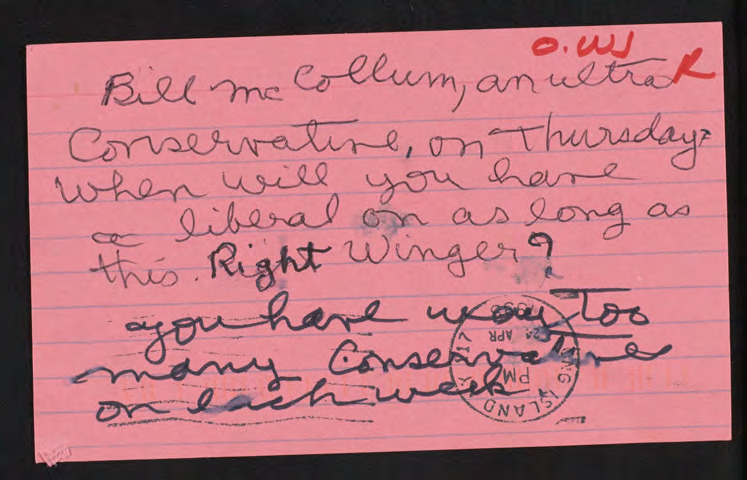 O.W
R
Bill McCollum, an ultra
Conservative, on Thursday.
When will you have
a liberal on as long as
this Right Winger?
you have way too
many Conservatives
on each week
ISLAND
PM
APR
117